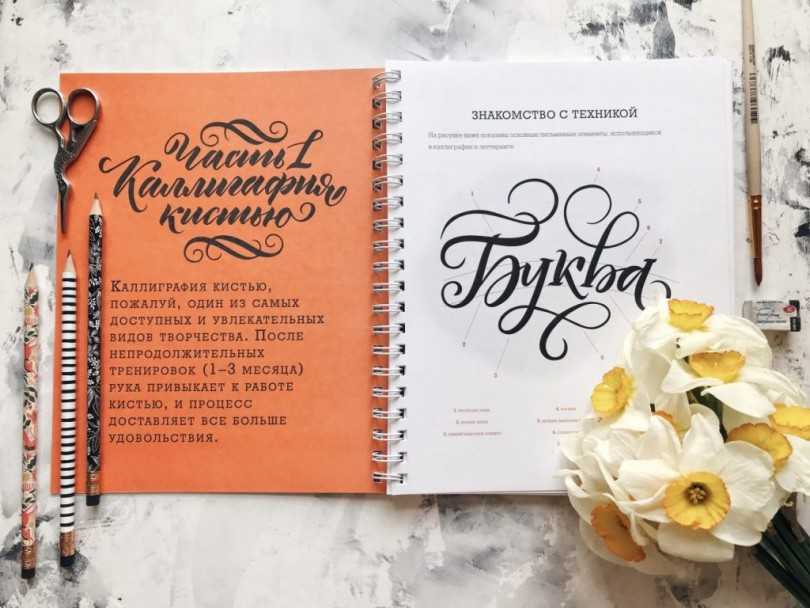 Часть 1
Каллиграфия
кистью
Каллиграфия кистью,
пожалуй, один из самых
доступных и увлекательных
видов творчества. После
непродолжительных
тренировок (1–3 месяца)
рука привыкает к работе
кистью, и процесс
доставляет все больше
удовольствия.
ЗНАКОМСТВО С ТЕХНИКОЙ
На рисунке ниже показаны основные письменные элементы, использующиеся
в каллиграфии и леттеринге.
Буква